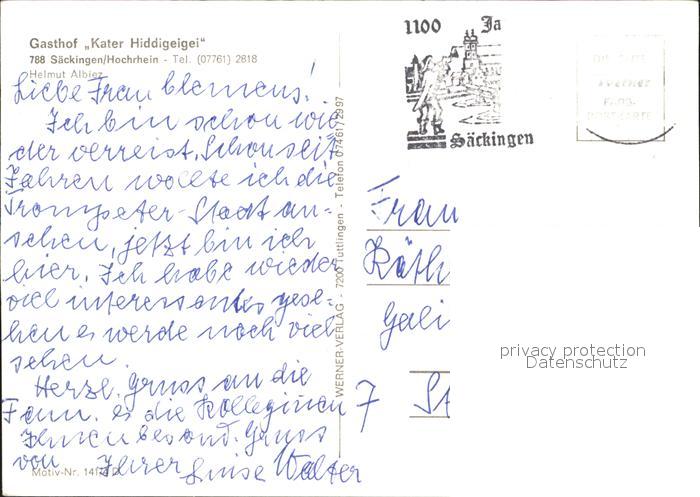 Gasthof „Kater Hiddigeigei“
788 Säckingen/Hochrhein - Tel. (07761) 2818
Helmut Albiez
Liebe Frau Clemens!
Ich bin schon wie
der verreist. Schon seit
Jahren wollte ich die
Trompeter-Stadt an-
sehen, jetzt bin ich
hier. Ich habe wieder
viel interessantes gese-
hen es werde noch viel
sehen.
Herzl. Gruss an die
Fam. es die Kolleginen
Ihnen besond. Gruss
von Ihrer Luise Walter
Motiv-Nr.
WERNER-VERLAG - 7200 Tuttlingen - Telefon 07461/72997
1100 Ja
Säckingen
POSTKARTE
Frau
Käth
Gali
7 St
privacy protection
Datenschutz